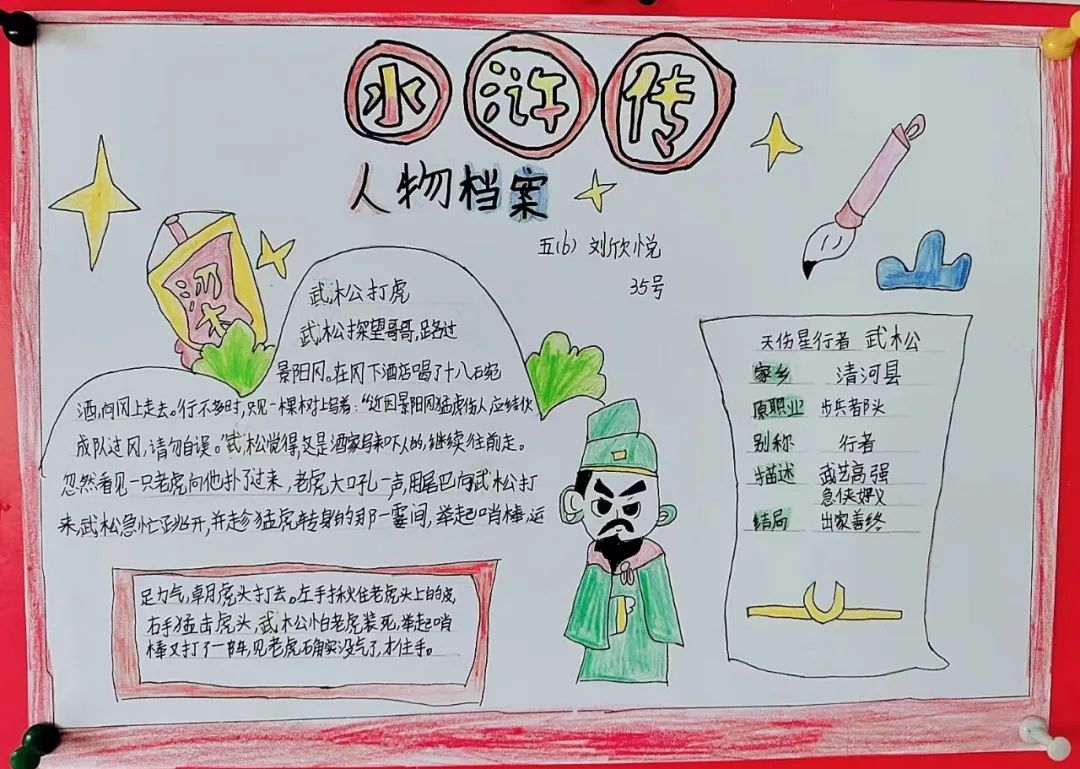 水浒传
人物档案
五(6) 刘欣悦
35号
梁
武松打虎
武松探望哥哥,路过
景阳冈。在冈下酒店喝了十八碗
酒,向冈上走去。行不多时,只见一棵树上写着:“近因景阳冈猛虎伤人应结伙
成队过冈,请勿自误。”武松觉得这是酒家写来吓人的,继续往前走。
忽然看见一只老虎向他扑了过来,老虎大吼一声,用尾巴向武松打
来,武松急忙跳开,并趁猛虎转身的那一霎间,举起哨棒,运
足力气,朝虎头打去。左手揪住老虎头上的皮,
右手猛击虎头,武松怕老虎装死,举起哨
棒又打了一阵,见老虎确实没气了,才住手。
天伤星行者 武松
家乡 清河县
原职业 步兵都头
别称 行者
描述 武艺高强
急侠好义
结局 出家善终